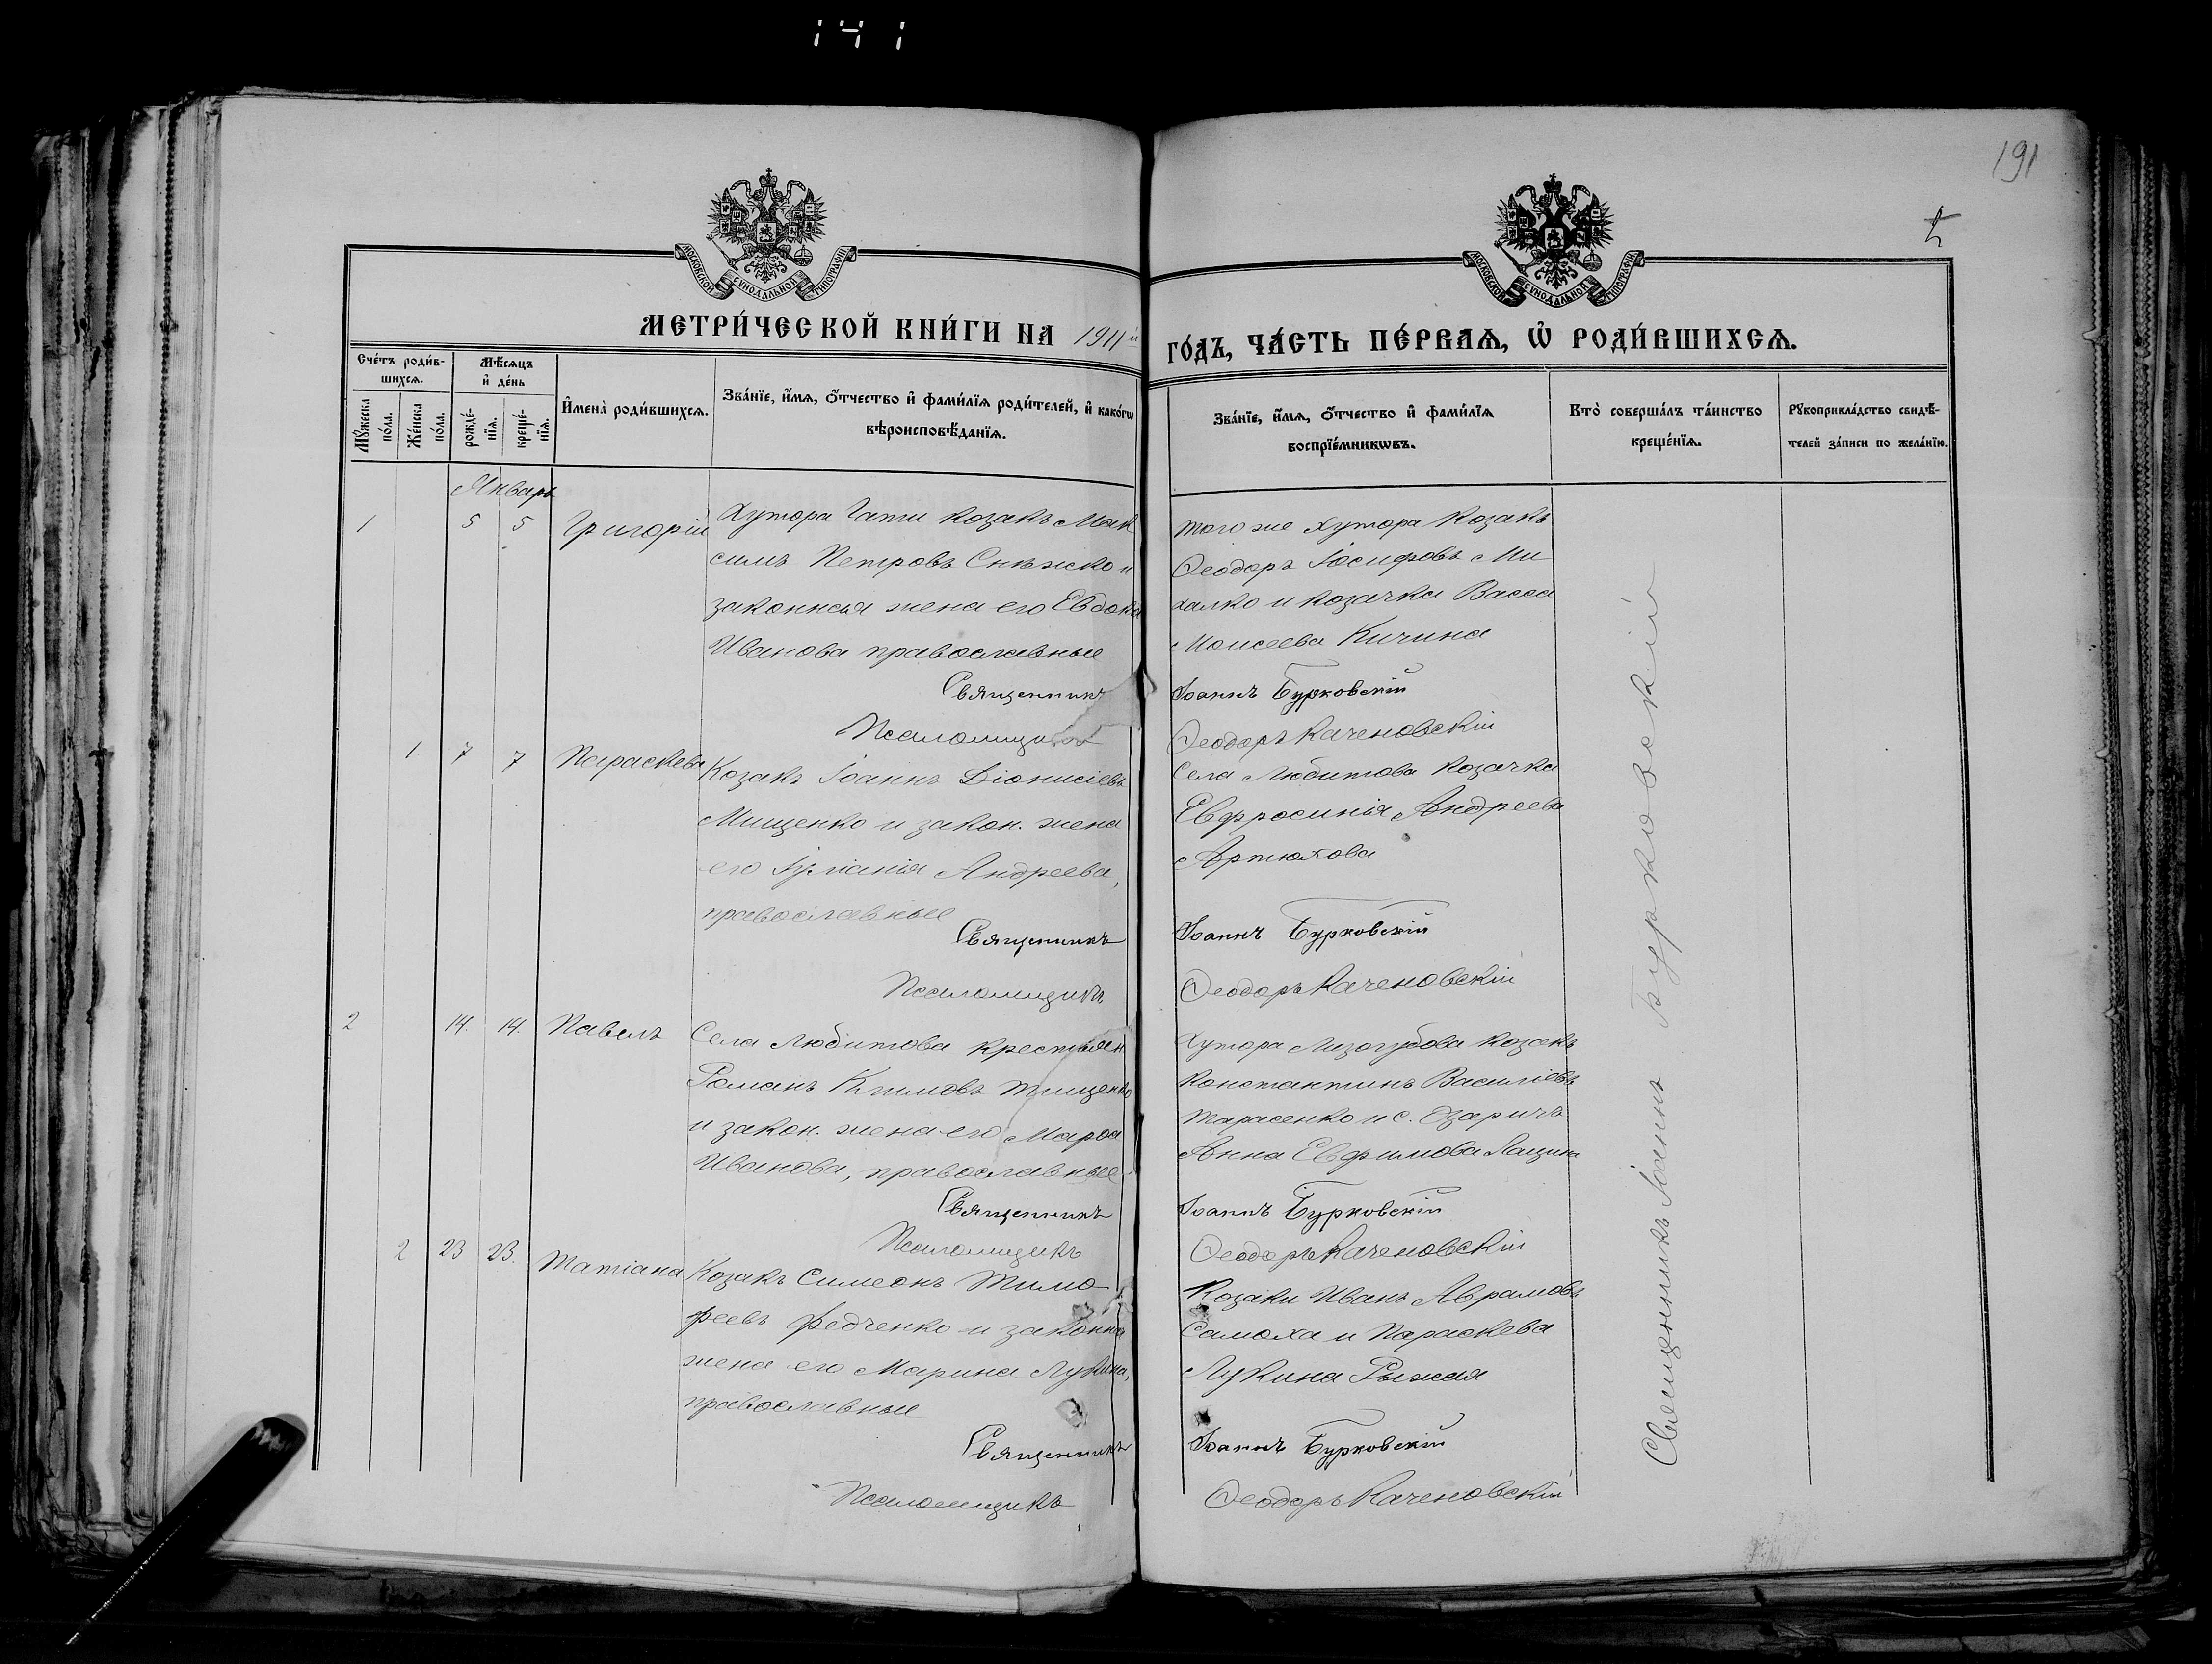 141
191
МОСКОВСКОЙ СѴНОДАЛЬНОЙ ТИПОГРАФІИ
МОСКОВСКОЙ СѴНОДАЛЬНОЙ ТИПОГРАФІИ
МЕТРИ́ЧЕСКОЙ КНИ́ГИ НА 1911й ГО́ДЪ, ЧА́СТЬ ПЕ́РВАѦ, Ѡ҆ РОДИ́ВШИХСѦ.
Сче́тъ роди́в-
шихсѧ.
Мꙋ́жеска по́ла.
Же́нска по́ла.
Мѣ́сѧцъ
и҆ де́нь
рожде́-
нїѧ.
креще́-
нїѧ.
И҆мена̀ роди́вшихсѧ.
Зва́нїе, и҆́мѧ, ѻ҆́тчество и҆ фами́лїѧ роди́телей, и҆ како́гѡ
вѣроисповѣ́данїѧ.
Зва́нїе, и҆́мѧ, ѻ҆́тчество и҆ фами́лїѧ
воспрїе́мникѡвъ.
Кто̀ соверша́лъ та́инство
креще́нїѧ.
Рꙋкоприкла́дство свидѣ́-
телей за́писи по жела́нїю.
Январь
1 5 5 Григорій
Хутора Гати козакъ Мак
симъ Петровъ Снѣжко и
законная жена его Евдокі
Иванова православные
Священникъ
Псаломщикъ
того же хутора козакъ
Ѳеодоръ Іосифовъ Ми
халко и козачка Васса
Моисеева Кичина
Іоаннъ Бурковскій
Ѳеодоръ Каченовскій
1. 7 7 Параскева
Козакъ Іоаннъ Діонисіевъ
Мищенко и закон. жена
его Іуліанія Андреева,
православные
Священникъ
Псаломщикъ
Села Любитова козачка
Евфросинія Андреева
Артюхова
Іоаннъ Бурковскій
Ѳеодоръ Каченовскій
2 14. 14. Павелъ
Села Любитова крестьян
Романъ Климовъ Тищенко
и закон. жена его Марѳа
Иванова, православные
Священникъ
Псаломщикъ
Хутора Лизогубова козакъ
Константинъ Василіевъ
Тарасенко и с. Озаричъ
Анна Евфимова
Іоаннъ Бурковскій
Ѳеодоръ Каченовскій
2 23 23. Татіана
Козакъ Симеонъ Тимо
феевъ Федченко и законна
жена его Марина Лукина,
православные
Священникъ
Псаломщикъ
Козаки Иванъ Аврамовъ
Самоха и Параскева
Лукина Рыжая
Іоаннъ Бурковскій
Ѳеодоръ Каченовскій
Священникъ Іоаннъ Бурковскій